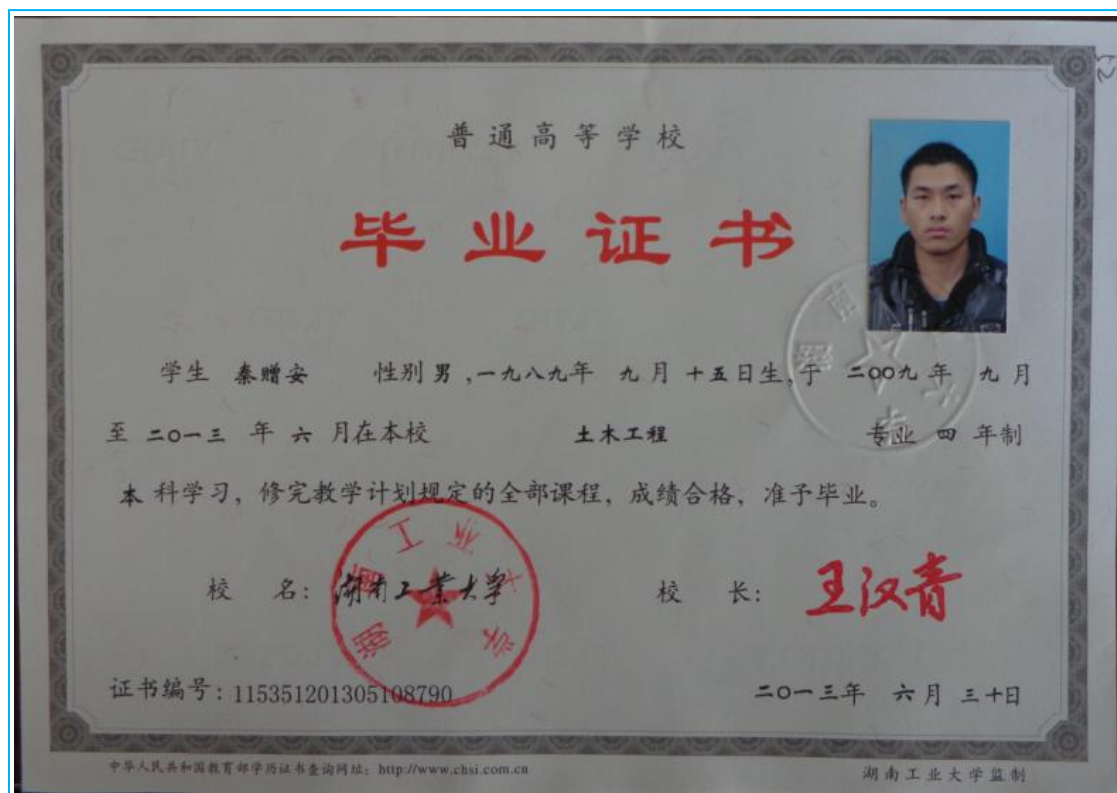 普通高等学校
毕业证书
学生 秦赠安 性别 男 ,一九八九年 九月 十五日生,于 二〇〇九年 九月
至 二〇一三 年 六 月在本校 土木工程 专业 四 年制
本 科学习，修完教学计划规定的全部课程，成绩合格，准予毕业。
校 名：湖南工业大学 校 长：王汉青
湖南工业大学
证书编号：115351201305108790 二〇一三年 六月 三十日
中华人民共和国教育部学历证书查询网址：http://www.chsi.com.cn 湖南工业大学监制